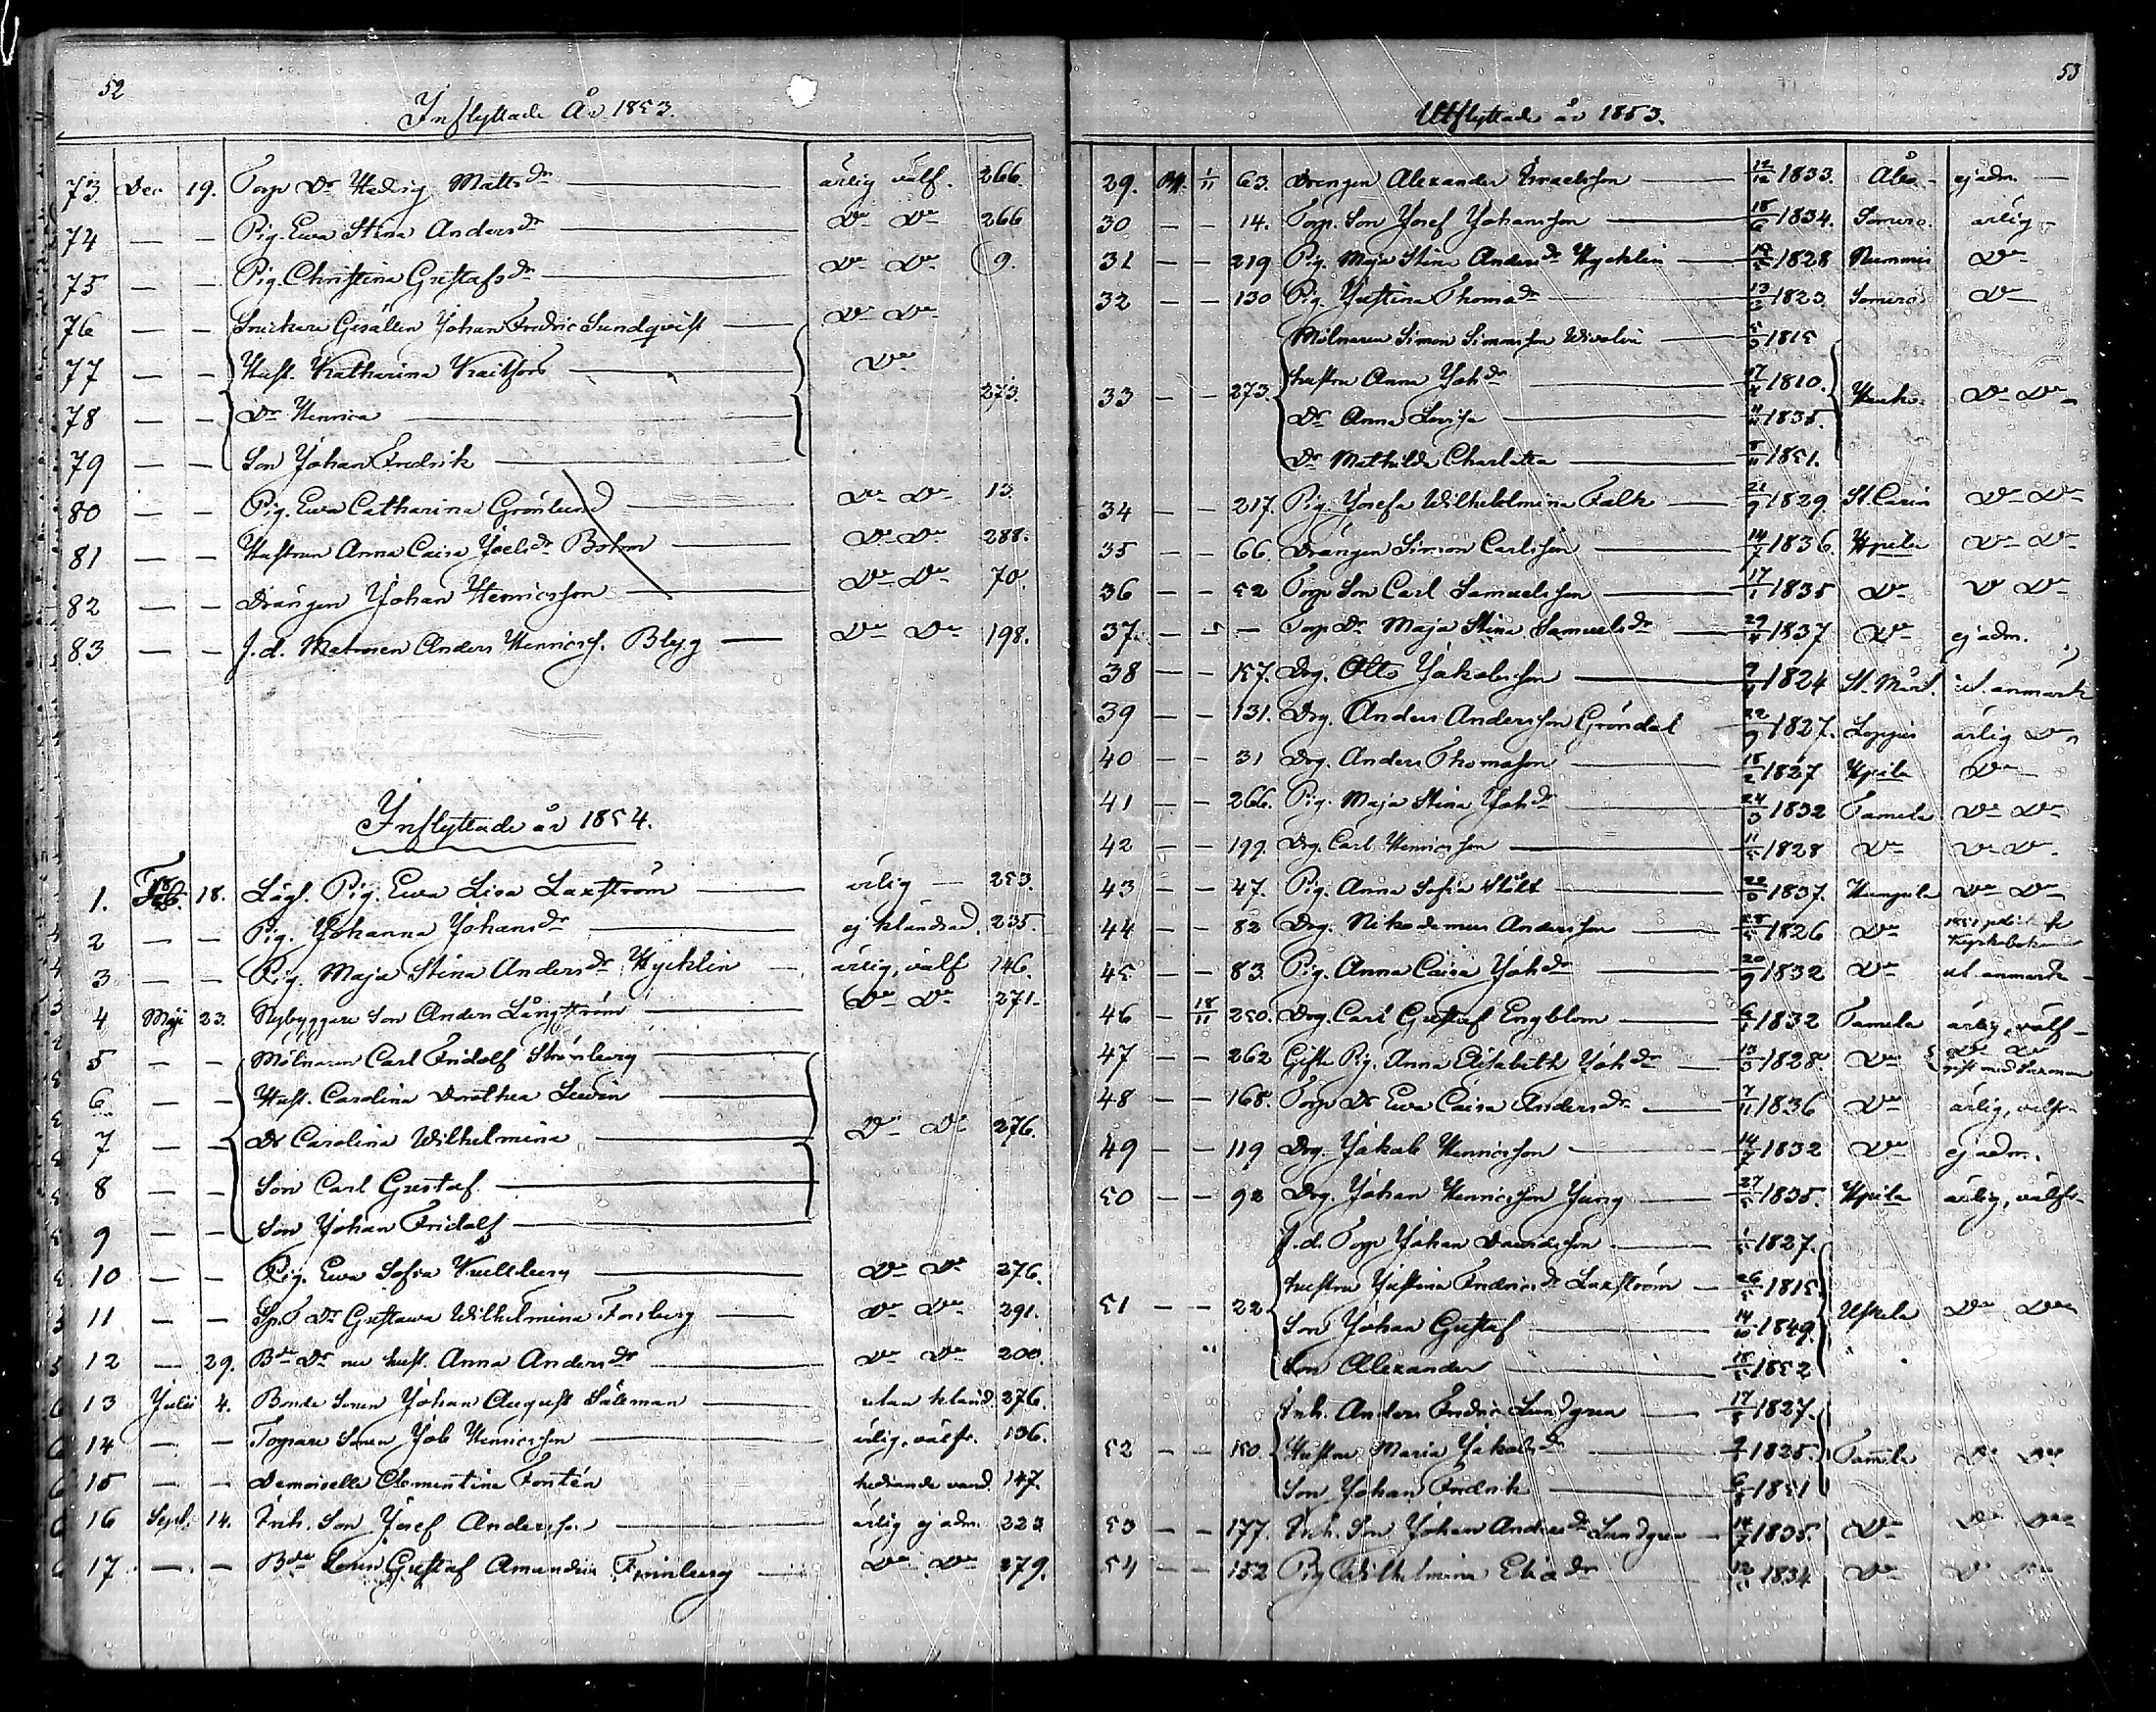 52
Inflyttade År 1853.
73 Dec 19. Torp Dr Hedvig Mattsdr årlig välf. 266.
74 — — Pig. Ewa Stina Andersdr Do Do 266
75 — — Pig. Christina Gustafsdr Do Do 9.
76 — — Snickare Gesällen Johan Fredric Sundqvist Do Do
77 — — Hust. Katharina Do
78 — — Dr Henrica 273.
79 — — Son Johan Fredrik
80 — — Pig. Ewa Catharina Grönlund Do Do 13
81 — — Hustrun Anna Caisa Joelsdr Bohm Do Do 288.
82 — — Drängen Johan Henricsson Do Do 70.
83 — — f.d. Anders Henricss. Blyg Do Do 198.
Inflyttade år 1854.
1. Feb. 18. Pig. Ewa Lisa Laxström ärlig — 253.
2 — — Pig. Johanna Johansdr ej klandrad 235.
3 — — Pig. Maja Stina Andersdr Hycklin ärlig, välf 146.
4 Maji 23. Nybyggare Son Anders Långström Do Do 271.
5 — — Mölnaren Carl Fridolf Strömberg
6 — — Hust. Carolina Dorothea
7 — — Dr Carolina Wilhelmina Do Do 276.
8 — — Son Carl Gustaf
9 — — Son Johan Fridolf
10 — — Pig. Ewa Sofia Kullberg Do Do 276.
11 — — Dr Gustawa Wilhelmina Forsberg Do Do 291.
12 — 29. Bde Dr nu hust. Anna Andersdr Do Do 200.
13 Julii 4. Bonde Sonen Johan August Säleman utan kland. 276.
14 — — Torpare Sonen Job Henricsson ärlig, välfr. 136.
15 — — Demoiselle Clementina Fortén hedrande vand. 147.
16 Sept. 14. Inh. Son Josef Andersson ärlig ej adm. 223
17 — — Bde Sonen Gustaf Amandus Do Do 279.
53
Utflyttade år 1853.
29. 1/11 63. Drengen Alexander Israelsson 12/12 1833. Åbo — ej adm. —
30 — — 14. Torp. Son Josef Johansson 18/6 1834. Somero. ärlig —
31 — — 219 Pig. Maja Stina Andersdr Hycklin 1828 Nummis Do
32 — — 130 Pig. Justina Thomadr 13/2 1823 Somero. Do
Mölnaren Simon Simonsson 1815
33 — — 273. hustru Anna Johdr 1810. Do Do
Dr Anna Lovisa 1835.
Dr Mathilda Charlotta 1851.
34 — — 217. Pig. Josefa Wilhelmina Falk 21/9 1829. St. Carin Do Do
35 — — 66. Drängen Simon Carlsson 1836. Ypela Do Do
36 — — 52 Torp Son Carl Samuelsson 17/1 1835 Do Do Do
37. — — — Torp Dr Maja Stina Samuelsdr 29/4 1837 Do ej adm.
38 — — 157. Drg. Otto Jakobsson 1824 St. Mårt. ut. anmärk
39 — — 131. Drg. Anders Andersson Gröndal 22/9 1827. Loppis ärlig Do
40 — — 31 Drg. Anders Thomasson 18/2 1827 Ypela Do
41 — — 266. Pig. Maja Stina Johdr 24/3 1832 Tamela Do Do
42 — — 199. Drg. Carl Henricsson 11/5 1828 Do Do Do
43 — — 47. Pig. Anna Sofia Stålt 1837. Do Do
44 — — 82 Drg. Nikodemus Andersson 1826 Do
45 — — 83. Pig. Anna Caisa Johdr 20/9 1832 Do ut. anmärk —
46 — 18/11 250. Drg. Carl Gustaf Engblom 1832 Tamela ärlig, välf —
47 — — 262 Gifta Pig. Anna Elisabeth Johdr 1828 Do Do Do gift med
48 — — 168. Torp Dr Ewa Caisa Andersdr 7/11 1836 Do ärlig, välfr
49 — — 119 Drg. Jakob Henricsson 1832 Do ej adm.
50 — — 92 Drg. Johan Henricsson Jung 27/5 1835. Ypela ärlig, välfr
f.d. Torp Johan Davidsson 1827.
hustru Justina Fredricsdr Laxström 1815.
51 — — 22 Son Johan Gustaf 14/10 1849. Uskela Do Do
Son Alexander 1852
Inh. Anders Fredric Lundgren 1827.
52 — — 150. Hustru Maria Jakobsdr 1825. Tamela Do Do
Son Johan Fredrik 1851
53 — — 177. Inh. Son Johan Lundgren 14/7 1835. Do Do Do
54 — — 152 Pig Wilhelmina Eliadr 1834 Do Do Do